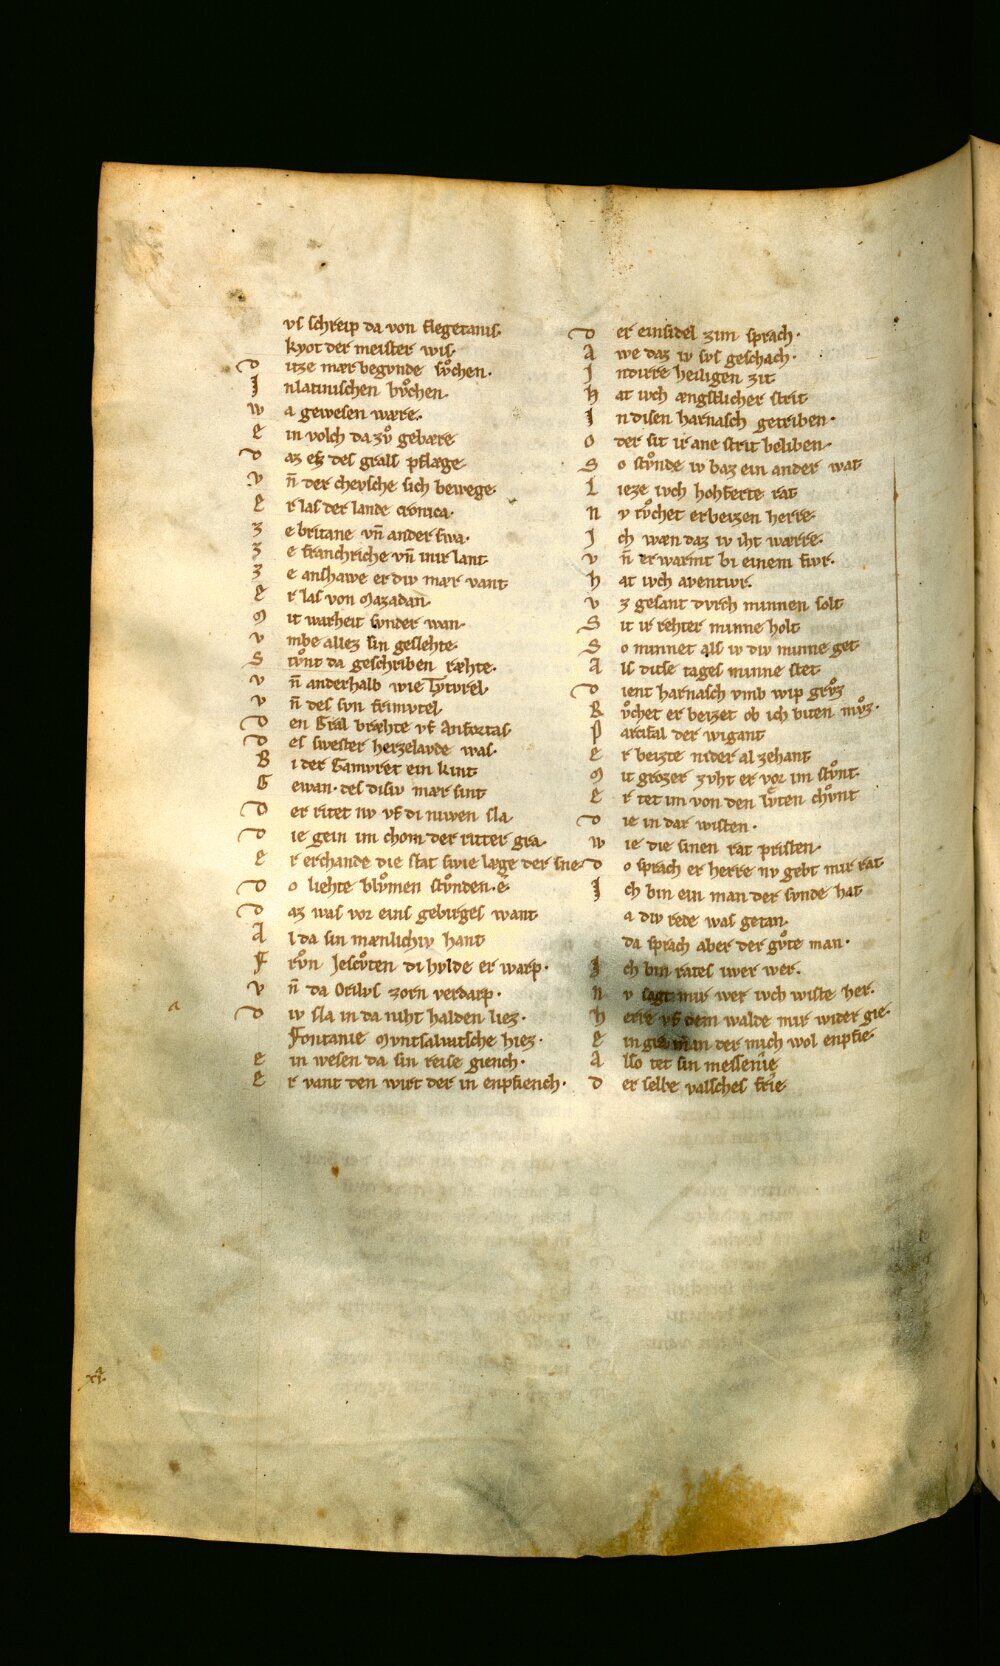 vs schreip da von flegetanis·
kyot der meister wis·
d itze mær begvnde sv̊chen·
J nlatinischen bv̊chen·
w a gewesen wære·
e in volch da zv̊ gebære
d az es des grals pflæge·
v n̄ der chevsche sich bewege·
e r las der lande cronica·
z e britane vn̄ ander swa·
z e franchriche vn̄ inir lant
z e anshawe er div mær vant
e r las von Mazadan·
M it warheit svnder wan·
v mbe allez sin geslehte·
S tv̊nt da geschriben ræhte·
v n̄ anderhalb wie Tytvrel·
v n̄ des svn frimvtel
d en Gral bræhte vf Anfortas
d es swester herzelavde was·
B i der Gamvret ein kint
G ewan· des disiv mær sint
d er ritet nv vf di niwen sla
d ie gein im chom der ritter gra·
e r erchande die stat swie læge der sne·
d o liehte blv̊men stv̊nden· e·
d az was vor eins gebirges want
A l da sin mænlichiv hant
F rôn Jescv̊ten di hvlde er warp·
v n̄ da Orilvs zorn verdarp·
d iv sla in da niht halden liez·
Fontanie Mvntsalvatsche hiez·
e in wesen da sin reise giench·
e r vant den wirt der in enpfiench·
d er einsidel zim sprach·
A we daz iv svs geschach·
J ndirre heiligen zit
h at ivch ængstlicher strit
J n disen harnasch getriben·
o der sit ir ane strit beliben·
S o stv̊nde iv baz ein ander wat
L ieze ivch hohferte rat
n v rv̊chet erbeizen herre·
J ch wæn daz iv iht wærre·
v n̄ erwarmt bi einem fivr·
h at ivch aventivr·
v z gesant dvrch minnen solt
S it ir rehter minne holt
S o minnet als iv div minne get
A ls ditse tages minne stet
d ient harnasch vmb wip grv̊z
R v̊chet er beizet ob ich biten mv̊z·
P arcifal der wigant
e r beizte nider al zehant
M it grozer zvht er vor im stv̊nt·
e r tet im von den lv̊ten chv̊nt
d ie in dar wisten·
w ie die sinen rat pristen·
d o sprach er herre nv gebt mir rat
J ch bin ein man der svnde hat
a div rede was getan·
da sprach aber der gv̊te man·
J ch bin rates iwer wer·
n v sagt mir wer ivch wiste her·
h erre vf dem walde mir wider gie·
e in gra man der mich wol enpfie·
A lso tet sin messenie
d er selbe valsches frie